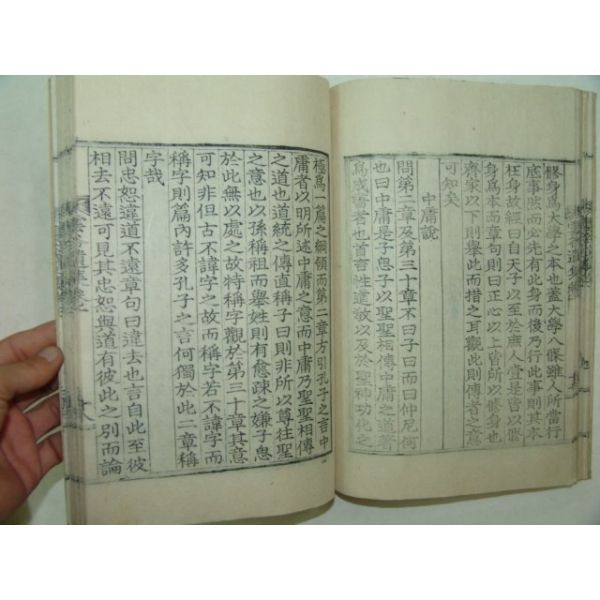 修身爲大學之本也蓋大學八條雖人所當行
底事然而必先有此身而後乃行此事則其本
在身故經曰自天子以至於庶人壹是皆以脩
身爲本而章句則曰正心以上皆所以脩身也
齊家以下則擧此而措之耳觀此則傳者之意
可知矣
中庸說
問第二章及第三十章不曰子曰而曰仲尼何
也曰中庸是子思子以聖聖相傳中庸之道著
爲成書者也首言性道敎以及於聖神功化之
極爲一篇之綱領而第二章方引孔子之言中
庸者以明所述中庸之意而中庸乃聖聖相傳
之道也道統之傳直稱子曰則非所以尊往聖
之意也以孫稱祖而擧姓則有愈疎之嫌子思
於此無以處之故特稱字觀於第三十章其意
可知非但古不諱字之故而稱字若不諱字而
稱字則篇內許多孔子之言何獨於此二章稱
字哉
問忠恕違道不遠章句曰違去也言自此至彼
相去不遠可見其忠恕與道有彼此之別而論